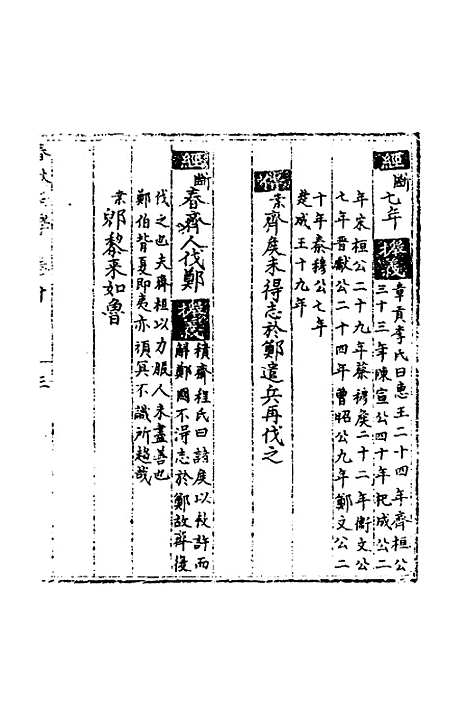 經斷七年
援義
章貢李氏曰惠王二十四年齊桓公
三十三年陳宣公四十年杞成公二
年宋桓公二十九年蔡穆侯二十二年衛文公
七年晉獻公二十四年曹昭公九年鄭文公二
十年秦穆公七年
楚成王十九年
案齊侯未得志於鄭遣兵再伐之
經斷春齊人伐鄭
援義
積齋程氏曰諸侯以救許而
解鄭國不得志於鄭故齊復
伐之也夫齊桓以力服人未盡善也
鄭伯背夏即夷亦頑冥不識所趨哉
案郳黎來如魯
三